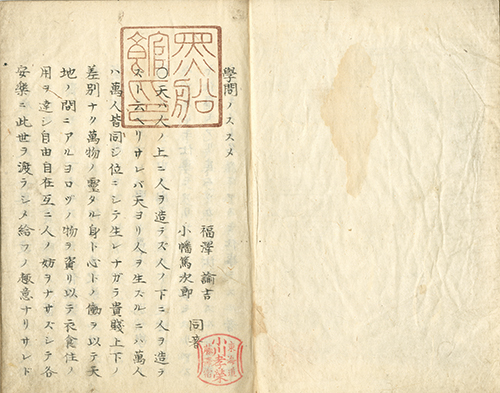 學問ノススメ
福澤諭吉
小幡篤次郎
同著
○天ハ人ノ上ニ人ヲ造ラズ人ノ下ニ人ヲ造ラ
ズト云ヘリサレバ天ヨリ人ヲ生ズルニハ萬人
ハ萬人皆同ジ位ニシテ生レナガラ貴賤上下ノ
差別ナク萬物ノ靈タル身ト心トノ働ヲ以テ天
地ノ間ニアルヨロヅノ物ヲ資リ以テ衣食住ノ
用ヲ達シ自由自在互ニ人ノ妨ヲナサズシテ各
安樂ニ此世ヲ渡ラシメ給フノ趣意ナリサレド